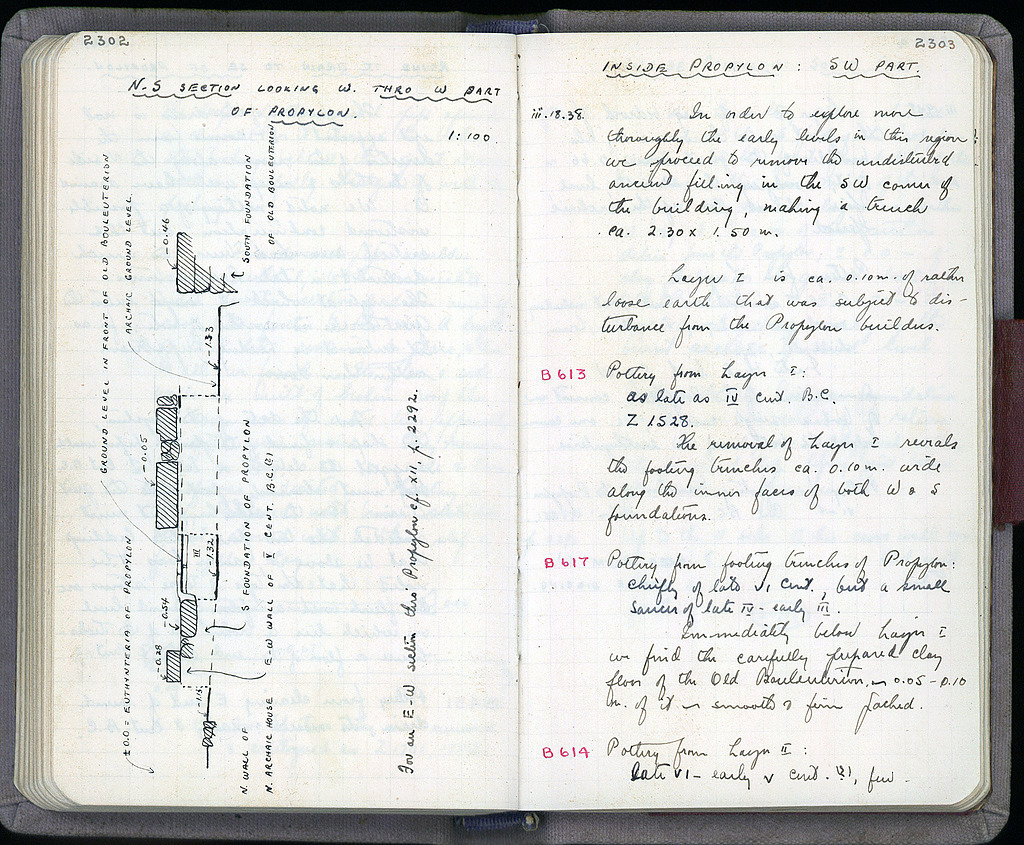 2302
N-S SECTION LOOKING W. THRO W PART
OF PROPYLON.
1:100
ARCHAIC GROUND LEVEL.
GROUND LEVEL IN FRONT OF OLD BOULEUTERION
±0.0 = EUTHYNTERIA OF PROPYLON
SOUTH FOUNDATION
OF OLD BOULEUTERION
-0.46
-1.33
-0.05
III
-1.32
-0.54
-0.28
S FOUNDATION OF PROPYLON
E-W WALL OF V CENT. B.C. (?)
N. WALL OF
N. ARCHAIC HOUSE
For an E-W section thro' Propylon cf. XII, p. 2292.
2303
INSIDE PROPYLON: SW PART.
iii.18.38. In order to explore more
thoroughly the early levels in this region
we proceed to remove the undisturbed
ancient filling in the SW corner of
the building, making a trench
ca. 2.30 x 1.50 m.
Layer I is ca. 0.10 m. of rather
loose earth that was subject to dis-
turbance from the Propylon builders.
B 613 Pottery from Layer I:
as late as IV cent. B.C.
Z 1528.
The removal of Layer I reveals
the footing trenches ca. 0.10 m. wide
along the inner faces of both W & S
foundations.
B 617 Pottery from footing trenches of Propylon:
chiefly of late VI cent., but a small
saucer of late IV - early III.
Immediately below Layer I
we find the carefully prepared clay
floor of the Old Bouleuterion, 0.05 - 0.10
m. of it smooth & firm packed.
B 614 Pottery from Layer II:
late VI - early V cent. few